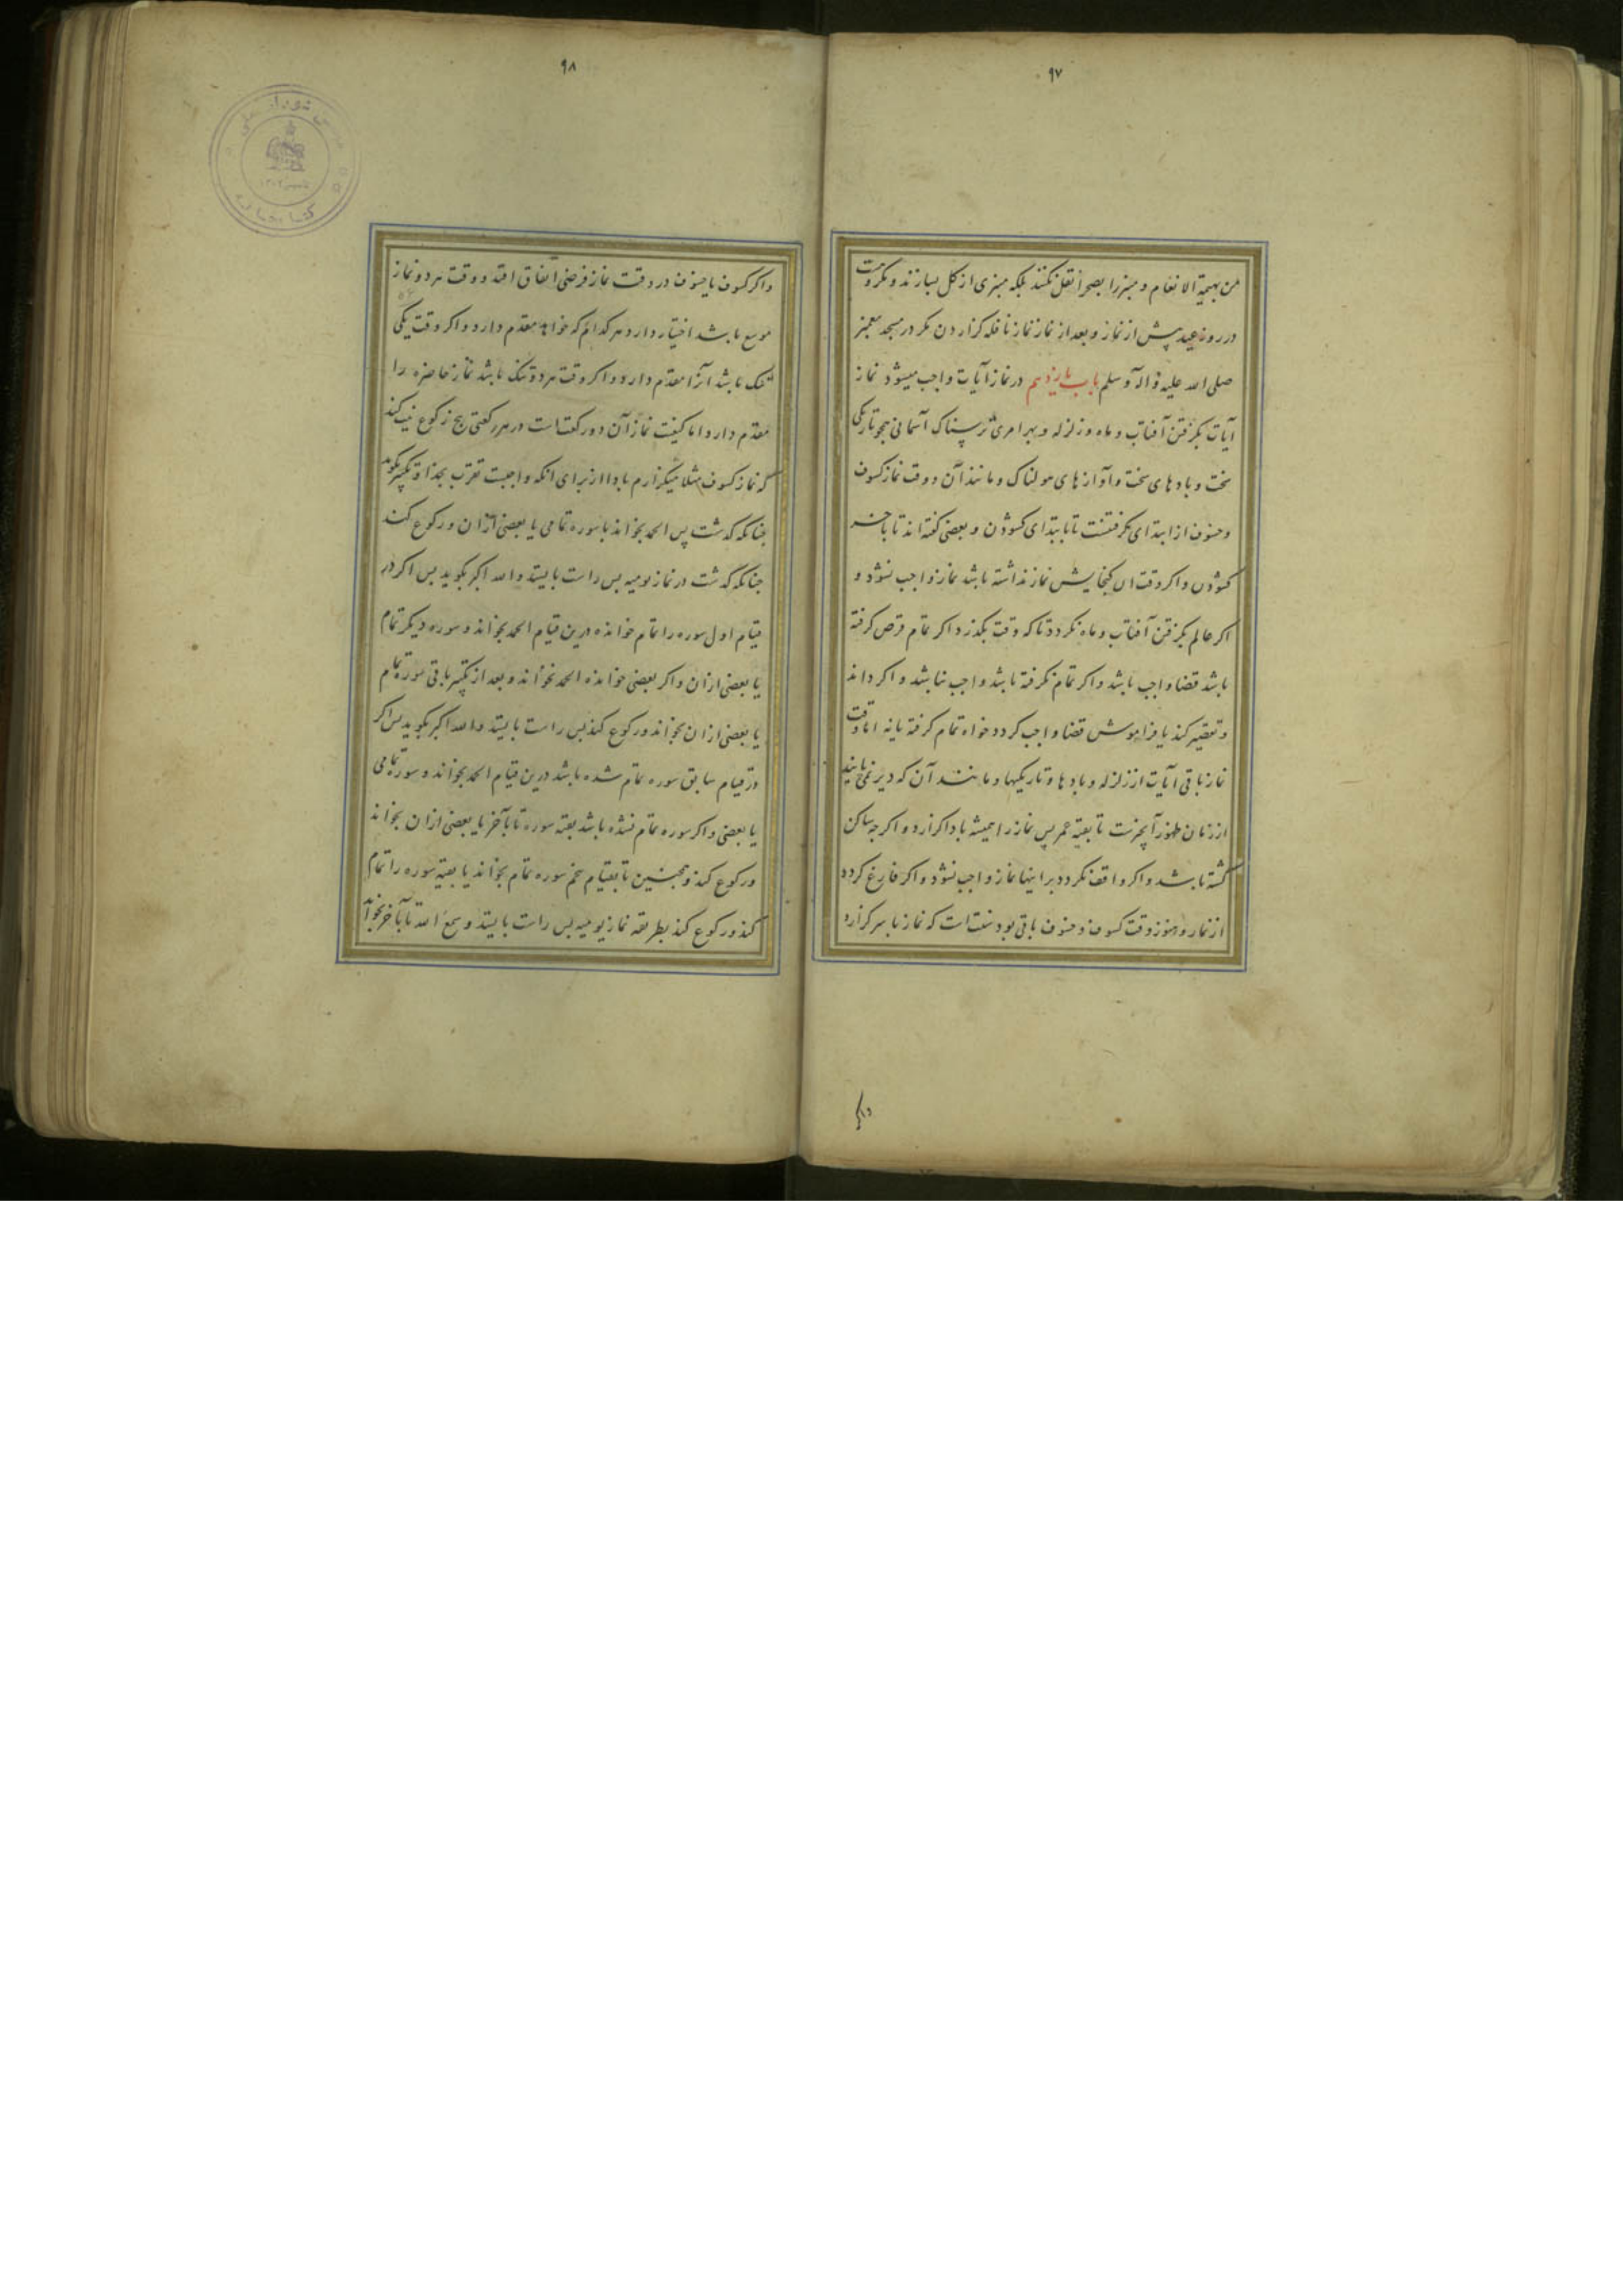 ۹۷
من بهیمة الانعام و منبر را بصحرا نقل نکنند بلکه منبری از کل بسازند و مکروهست
در روز عید پیش از نماز و بعد از نماز نماز نافله کزاردن مکر در مسجد پیغمبر
صلی الله علیه و آله و سلم باب یازدهم در نماز آیات واجب میشود نماز
آیات بکرفتن آفتاب و ماه و زلزله و بهر امری ترسناک آسمانی همچو تاریکی
سخت و بادهای سخت و آوازهای هولناک و مانند آن و وقت نماز کسوف
و خسوف از ابتدای کرفتنست تا بابتدای کشودن و بعضی کفته اند تا باخر
کشودن و اکر وقت آن کنجایش نماز نداشته باشد نماز واجب نشود و
اکر عالم بکرفتن آفتاب و ماه نکردد تا که وقت بکذرد اکر تمام قرص کرفته
باشد قضا واجب باشد و اکر تمام نکرفته باشد واجب نباشد و اکر داند
و تقصیر کند یا فراموش قضا واجب کردد خواه تمام کرفته یا نه اما وقت
نماز باقی آیات از زلزله و بادها و تاریکیها و مانند آن که دیر نمی پایند
از زمان ظهور آیتست تا بقیه عمر پس نماز را همیشه بادا کزارد و اکرچه ساکن
کشته باشد و اکر واقف نکردد بر اینها نماز واجب نشود و اکر فارغ کردد
از نماز و هنوز وقت کسوف و خسوف باقی بود سنت است که نماز با سر کزارد
واکر
۹۸
واکر کسوف یا خسوف در وقت نماز فرضی اتفاق افتد و وقت هر دو نماز
موسع باشد اختیار دارد هر کدام که خواهد مقدم دارد و اکر وقت یکی
تنک باشد آنرا مقدم دارد و اکر وقت هر دو تنک باشد نماز حاضره را
مقدم دارد اما کیفیت نماز آن دو رکعت است در هر رکعتی پنج رکوع نیت کند
که نماز کسوف مثلا میکزارم بادا از برای آنکه واجبست تقرب بخدا و تکبیر بکوید
چنانکه کذشت پس الحمد بخواند با سوره تمامی یا بعضی از آن و رکوع کند
چنانکه کذشت در نماز یومیه پس راست بایستد و الله اکبر بکوید پس اکر در
قیام اول سوره را تمام خوانده درین قیام الحمد بخواند و سوره دیکر تمام
یا بعضی از آن و اکر بعضی خوانده الحمد نخواند و بعد از تکبیر باقی سوره تمام
یا بعضی از آن بخواند و رکوع کند پس راست بایستد و الله اکبر بکوید پس اکر
در قیام سابق سوره تمام شده باشد درین قیام الحمد بخواند و سوره تمامی
یا بعضی و اکر سوره تمام نشده باشد بقیه سوره تا بآخر یا بعضی از آن بخواند
و رکوع کند و همچنین تا بقیام پنجم سوره تمام بخواند یا بقیه سوره را تمام
کند و رکوع کند بطریقه نماز یومیه پس راست بایستد و سمع الله تا بآخر بخواند